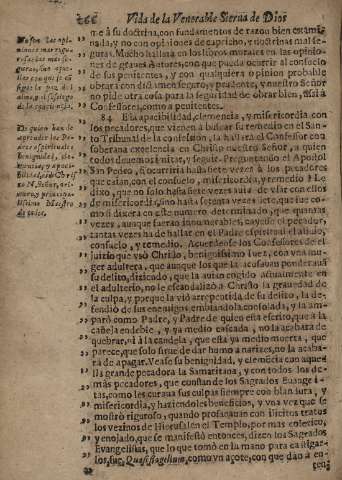 266 Vida de la Venerable Sierva de Dios
me à su doctrina, con fundamentos de razon bien examinada, y no con opiniones de capricho, y doctrinas mal seguras. Mucho hallarà en los libros morales en las opiniones de graves Autores, con que pueda ocurrir al consuelo
de sus penitentes, y con qualquiera opinion probable
obrarà con dictamen seguro, y prudente, y nuestro Señor
no pide otra cosa para la seguridad de obrar bien, assi à
Confessores, como à penitentes.
84 Es la apacibilidad, clemencia, y misericordia con
los pecadores, que vienen à buscar su remedio en el Santo Tribunal de la confession, la hallarà el Confessor con
soberana excelencia en Christo nuestro Señor, à quien
todos devemos imitar, y seguir. Preguntando el Apostol
San Pedro, si ocurriria hasta siete vezes à los pecadores
que caìan, con el consuelo, misericordia, y remedio? Le
dixo, que no solo hasta siete vezes avia de usar con ellos
de misericordia, sino hasta setenta vezes siete, que fue como si dixera en este numero determinado, que quantas
vezes, aunque fueran innumerables, cayesse el pecador,
tantas vezes ha de hallar en el Padre espiritual el alivio,
consuelo, y remedio. Acuerdense los Confessores de el
juizio que usò Christo, benignissimo Iuez, con una muger adultera, que aunque los que la acusavan ponderavan
su delito, diziendo, que la avian cogido actualmente en
el adulterio, no le escandalizò à Christo la gravedad de
la culpa, y porque la viò arrepentida de su delito, la defendiò de sus enemigos, embiandola consolada, y la amparò como Padre, y Padre de quien està escrito, que à la
cañeja endeble, y ya medio cascada, no la acabarà de
quebrar, ni à la candela, que està ya medio muerta, que
parece, que solo sirve de dar humo à narizes, no la acabarà de apagar. Vease su benignidad, y clemencia con aquella grande pecadora la Samaritana, y con todos los demàs pecadores, que constan de los Sagrados Euangelistas, como les curava sus culpas siempre con blandura, y
misericordia, y haziendoles beneficios, y una vez que se
mostrò riguroso, quando profanavan con ilicitos tratos
los vezinos de Hierusalen el Templo, por mas colerico,
y enojado, que se manifestò entonces, dizen los Sagrados
Evangelistas, que lo que tomò en la mano para castigarlos, fue, Quasi flagellum, como un açote, con que dàn à en-